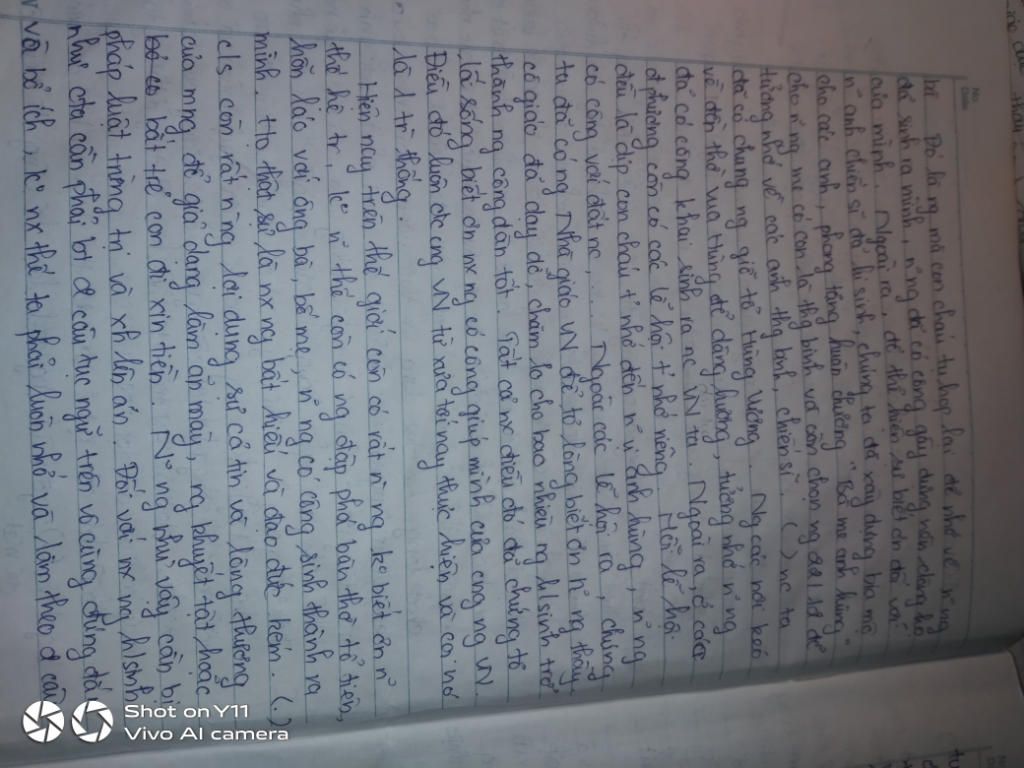 bè. Đó là ng mà con cháu tụ họp lại để nhớ về n~ ng
đã sinh ra mình, n~ ng đã có công gây dựng nên dòng họ
của mình. Ngoài ra, để thể hiện sự biết ơn đối với
n~ anh chiến sĩ đã hi sinh, chúng ta đã xây dựng bia mộ
cho các anh, phong tặng huân chương "Bà mẹ anh hùng"
cho n~ ng mẹ có con là thg binh và còn chọn ng 27/7 để
tưởng nhớ về các anh thg binh, chiến sĩ. ( ) nc ta
đã có chung ng giỗ tổ Hùng Vương. Ng các nơi kéo
về đền thờ vua Hùng để dâng hương, tưởng nhớ n~ ng
đã có công khai sinh ra nc VN ta. Ngoài ra, ở các
địa phương còn có các lễ hội t nhớ riêng. Mỗi lễ hội
đều là dịp con cháu t nhớ đến n~ vị anh hùng, n~ ng
có công với đất nc,.... Ngoài các lễ hội ra, chúng
ta đã có ng Nhà giáo VN để tỏ lòng biết ơn n~ ng thầy
cô giáo đã dạy dỗ, chăm lo cho bao nhiêu ng h/sinh trở
thành ng công dân tốt. Tất cả nx điều đó đã chứng tỏ
lối sống biết ơn nx ng có công giúp mình của cng ng VN.
Điều đó luôn đc cng VN từ xưa tới nay thực hiện và coi nó
là 1 tr thống.
Hiện nay trên thế giới còn có rất n~ ng k° biết ơn n~
thế hệ tr, k° n~ thế còn có ng đập phá bàn thờ tổ tiên,
hỗn láo với ông bà, bố mẹ, n~ ng có công sinh thành ra
mình. Họ thật sự là nx ng bất hiếu và đạo đức kém. (.)
c/s còn rất n~ ng lợi dụng sự cả tin và lòng thương
của mng để giả dạng làm ăn mày, ng khuyết tật hoặc
bắt trẻ con đi xin tiền. N~ ng như vậy cần bị
pháp luật trừng trị và xh lên án. Đối với nx ng h/sinh
như cta cần phải bt đ câu tục ngữ trên vô cùng đúng đắn
và bổ ích x k° nx thế ta phải luôn nhớ và làm theo đ câu
Shot on Y11
Vivo AI camera